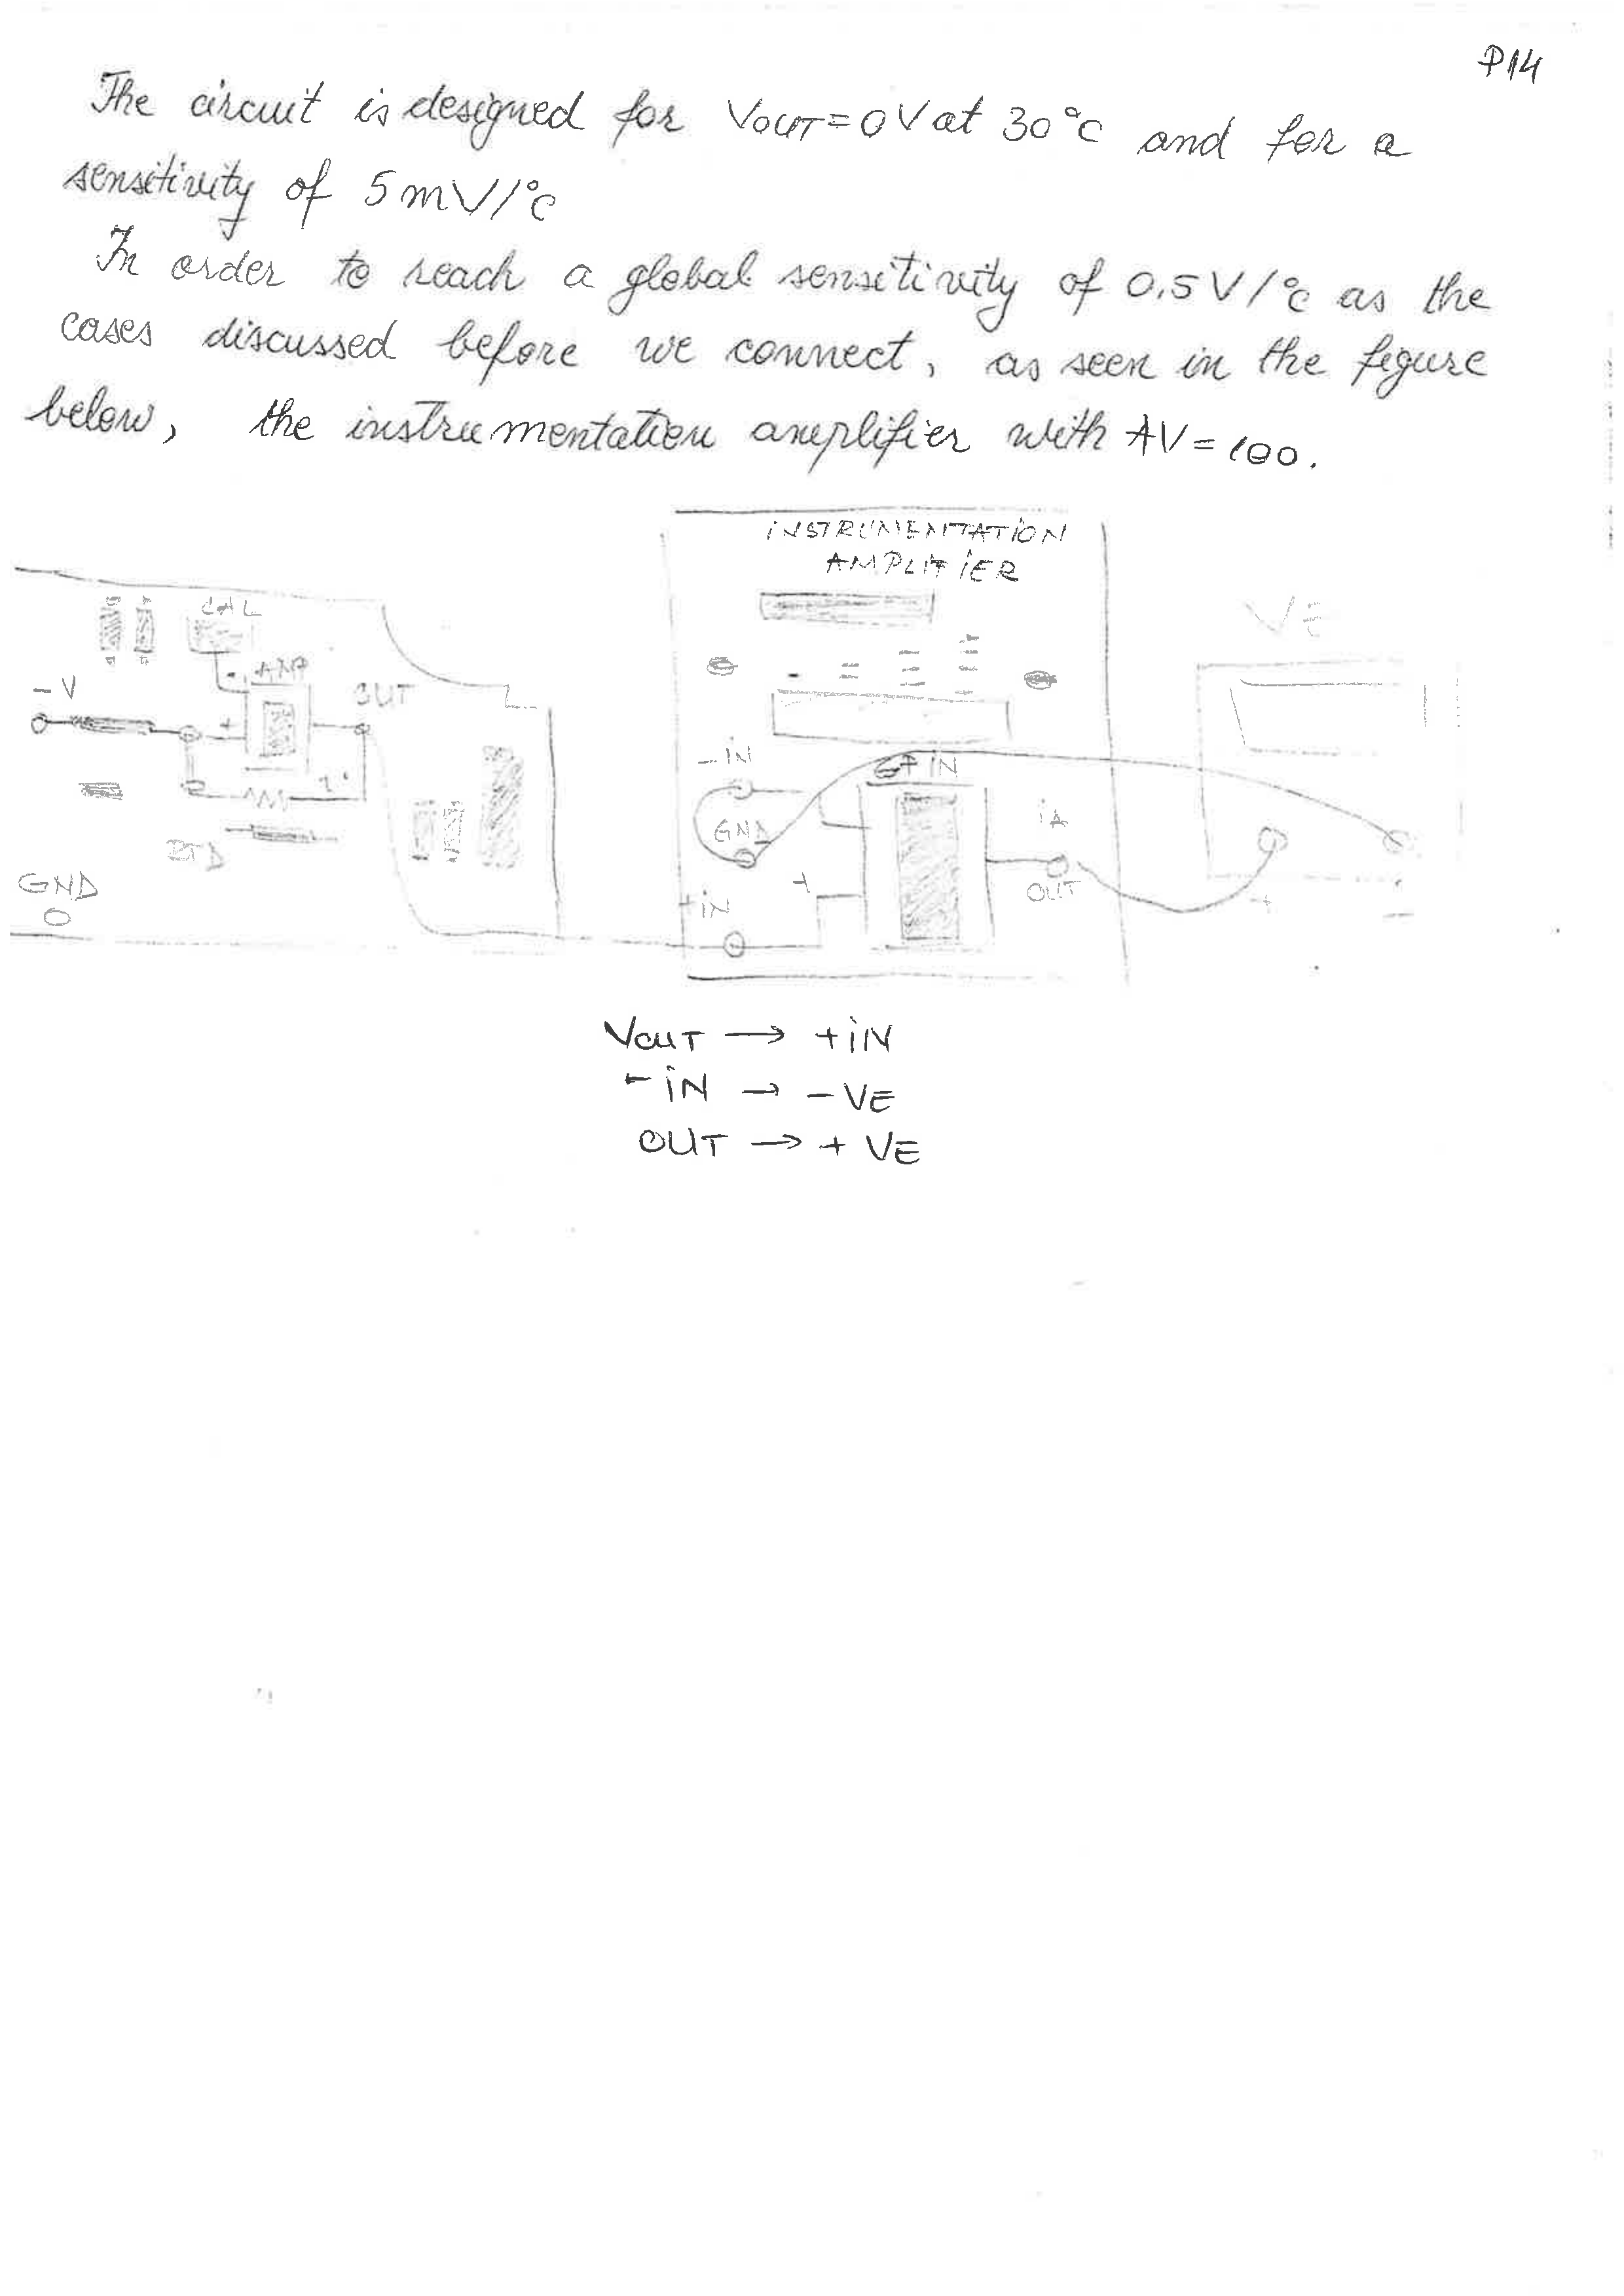 P14
The circuit is designed for VOUT=0V at 30°C and for a
sensitivity of 5mV/°C
In order to reach a global sensitivity of 0.5V/°C as the
cases discussed before we connect, as seen in the figure
below, the instrumentation amplifier with AV=100.
INSTRUMENTATION
AMPLIFIER
VE
CAL
AMP
-V
OUT
+
-IN
GND
+
iA
OUT
+IN
RTD
GND
+
-
VOUT → +IN
-IN → -VE
OUT → + VE